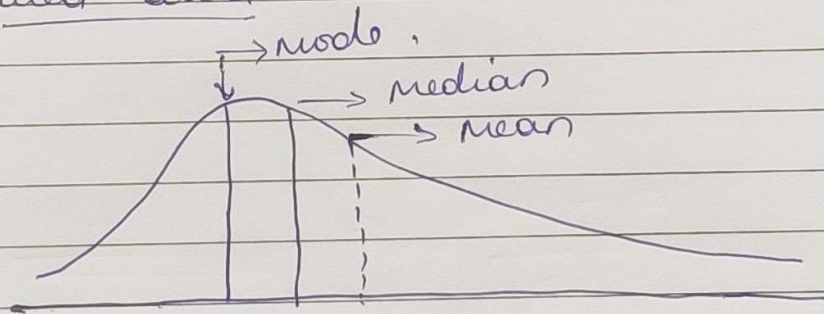 Mode.
Median
Mean